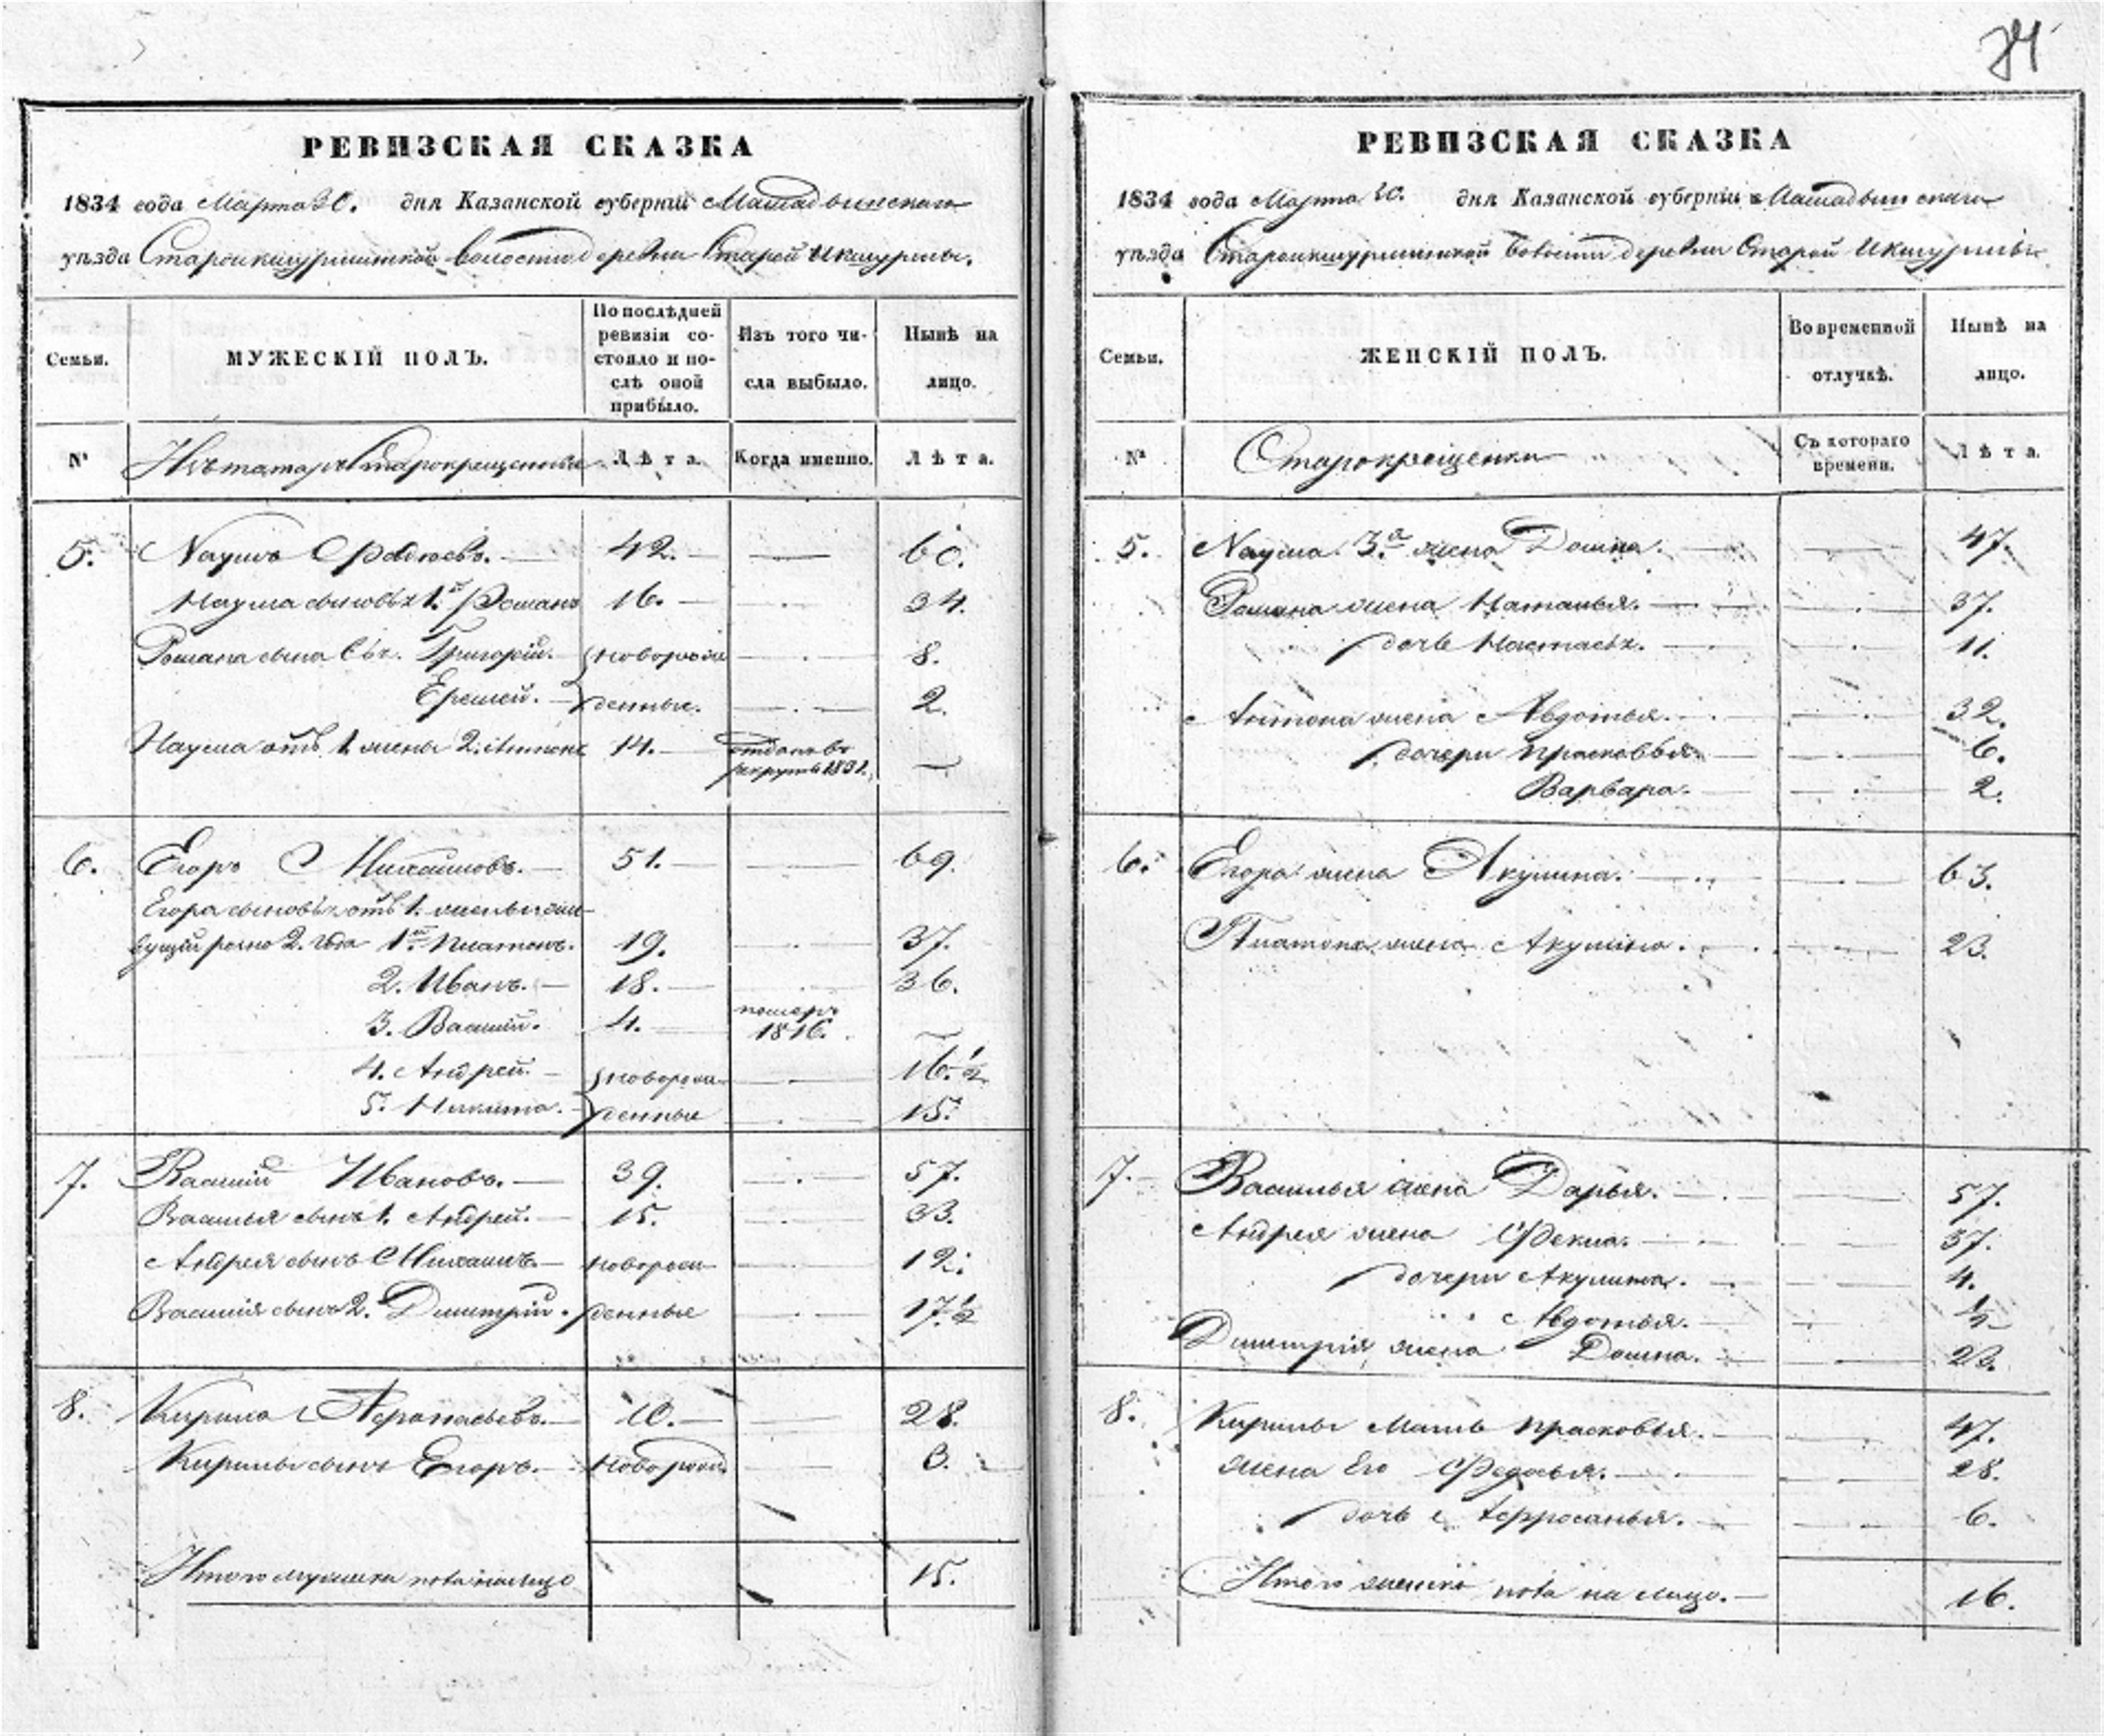 РЕВИЗСКАЯ СКАЗКА
1834 года Марта 30. дня Казанской губерніи Мамадышскаго
уѣзда Староикшурминской волости деревни Старой Икшурмы.
Семьи. МУЖЕСКІЙ ПОЛЪ. По послѣдней ревизіи состояло и послѣ оной прибыло. Изъ того числа выбыло. Нынѣ на лицо.
№ Изъ татаръ Старокрещенныхъ Лѣта. Когда именно. Лѣта.
5. Наумъ Фадѣевъ. 42. 60.
Наума сыновья 1.й Романъ 16. 34.
Романа сына Григорій. новорож 8.
Еремей. денные. 2.
Наума отъ 1. жены 2. Антонъ 14. отданъ въ
рекруты 1831.
6. Егоръ Михаиловъ. 51. 69.
Егора сыновья отъ 1. жены
1.й Платонъ. 19. 37.
2. Иванъ. 18. 36.
3. Василій. 4. померъ 1816.
4. Андрей. новорож 16.½
5. Никита. денные 15.
7. Василій Ивановъ. 39. 57.
Василья сынъ 1. Андрей. 15. 33.
Андрея сынъ Михаилъ. новорож 12.
Василія сынъ 2. Дмитрій. денные 17.½
8. Кирила Афонасьевъ. 10. 28.
Кирилы сынъ Егоръ. новорожд. 3.
Итого мужеска пола на лицо 15.
РЕВИЗСКАЯ СКАЗКА
1834 года Марта 30. дня Казанской губерніи Мамадышскаго
уѣзда Староикшурминской волости деревни Старой Икшурмы
Семьи. ЖЕНСКІЙ ПОЛЪ. Во временной отлучкѣ. Нынѣ на лицо.
№ Старокрещенки Съ котораго времени. Лѣта.
5. Наума 3.я жена Домна. 47.
Романа жена Наталья. 37.
дочь Настасья. 11.
Антона жена Авдотья. 32.
дочери Прасковья. 6.
Варвара. 2.
6. Егора жена Акулина. 63.
Платона жена Акулина. 23.
7. Василья жена Дарья. 57.
Андрея жена Фекла. 37.
дочери Акулина. 4.
Авдотья. ½
Дмитрія жена Домна. 23.
8. Кирилы мать Прасковья. 47.
жена его Федосья. 28.
дочь Аффросинья. 6.
Итого женска пола на лицо. 16.